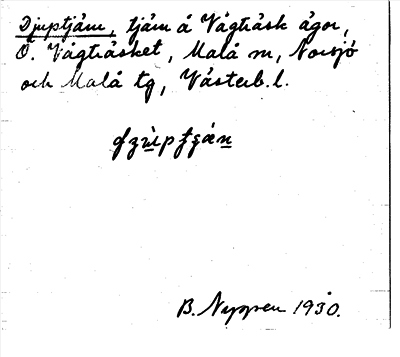 Djuptjärn, tjärn å Vägträsk ägor,
Ö. Vägträsket, Malå sn, Norsjö
och Malå tg, Västerb. l.
B. Nyman 1930.